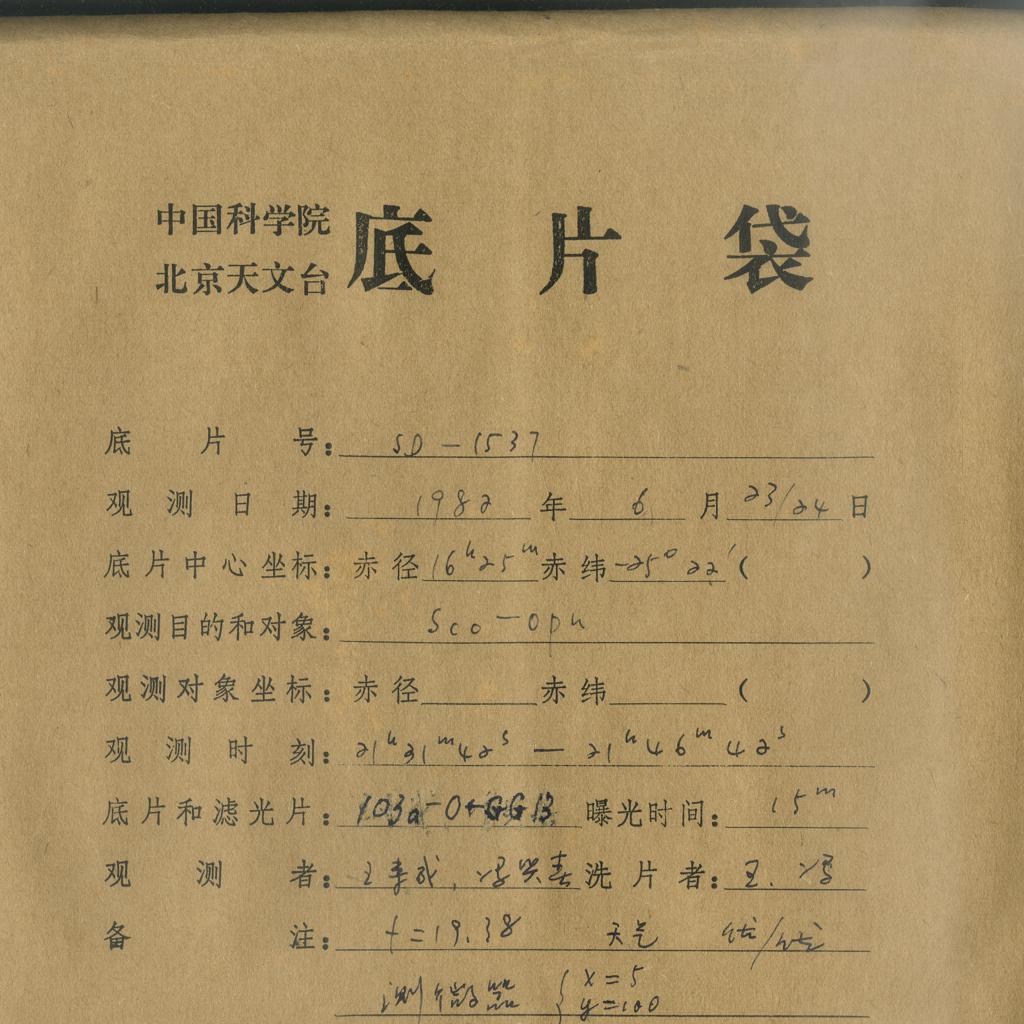 中国科学院
北京天文台
底片袋
底片号: SD-1537
观测日期: 1982年6月23/24日
底片中心坐标: 赤径16h25m赤纬-25°22′( )
观测目的和对象: Sco-Oph
观测对象坐标: 赤径 赤纬 ( )
观测时刻: 21h31m42s — 21h46m42s
底片和滤光片: 103a-O+GG13 曝光时间: 15m
观测者: 王 洗片者: 王.冯
备注: f=19.38 天气 优/优
测微器 { x=5
y=100